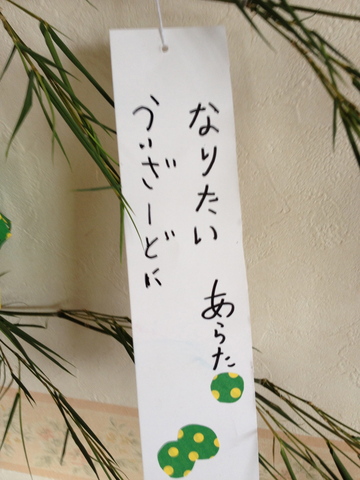 うぃざーどに
なりたい
あらた